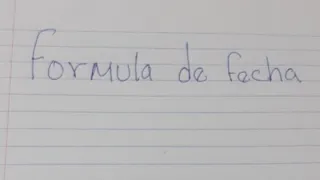 Formula de fecha